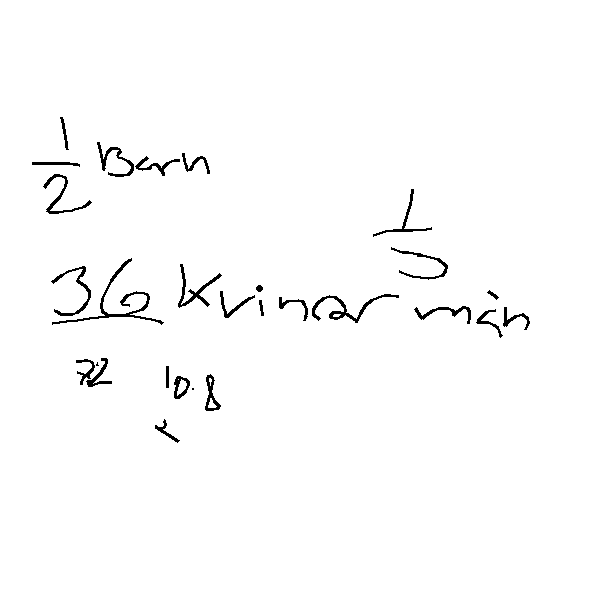 1/2 Barn
1/5
36 Kvinor män
72 10.8